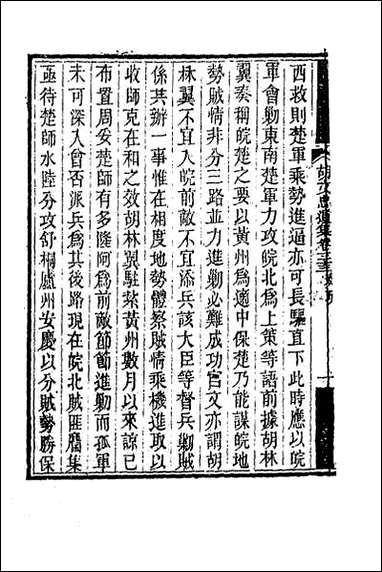 西救則楚軍乘勢進逼亦可長驅直下此時應以皖
軍會勦東南楚軍力攻皖北爲上策等語前據胡林
翼奏稱皖楚之要以黃州爲適中保楚乃能謀皖地
勢賊情非分三路並力進勦必難成功官文亦謂胡
林翼不宜入皖前敵不宜添兵該大臣等督兵勦賊
係共辦一事惟在相度地勢體察賊情乘機進取以
收師克在和之效胡林翼駐紮黃州數月以來諒已
布置周妥楚師有多隆阿爲前敵節節進勦而孤軍
未可深入曾否派兵爲其後路現在皖北賊匪麕集
亟待楚師水陸分攻舒桐廬州安慶以分賊勢勝保
胡文忠遺集卷三